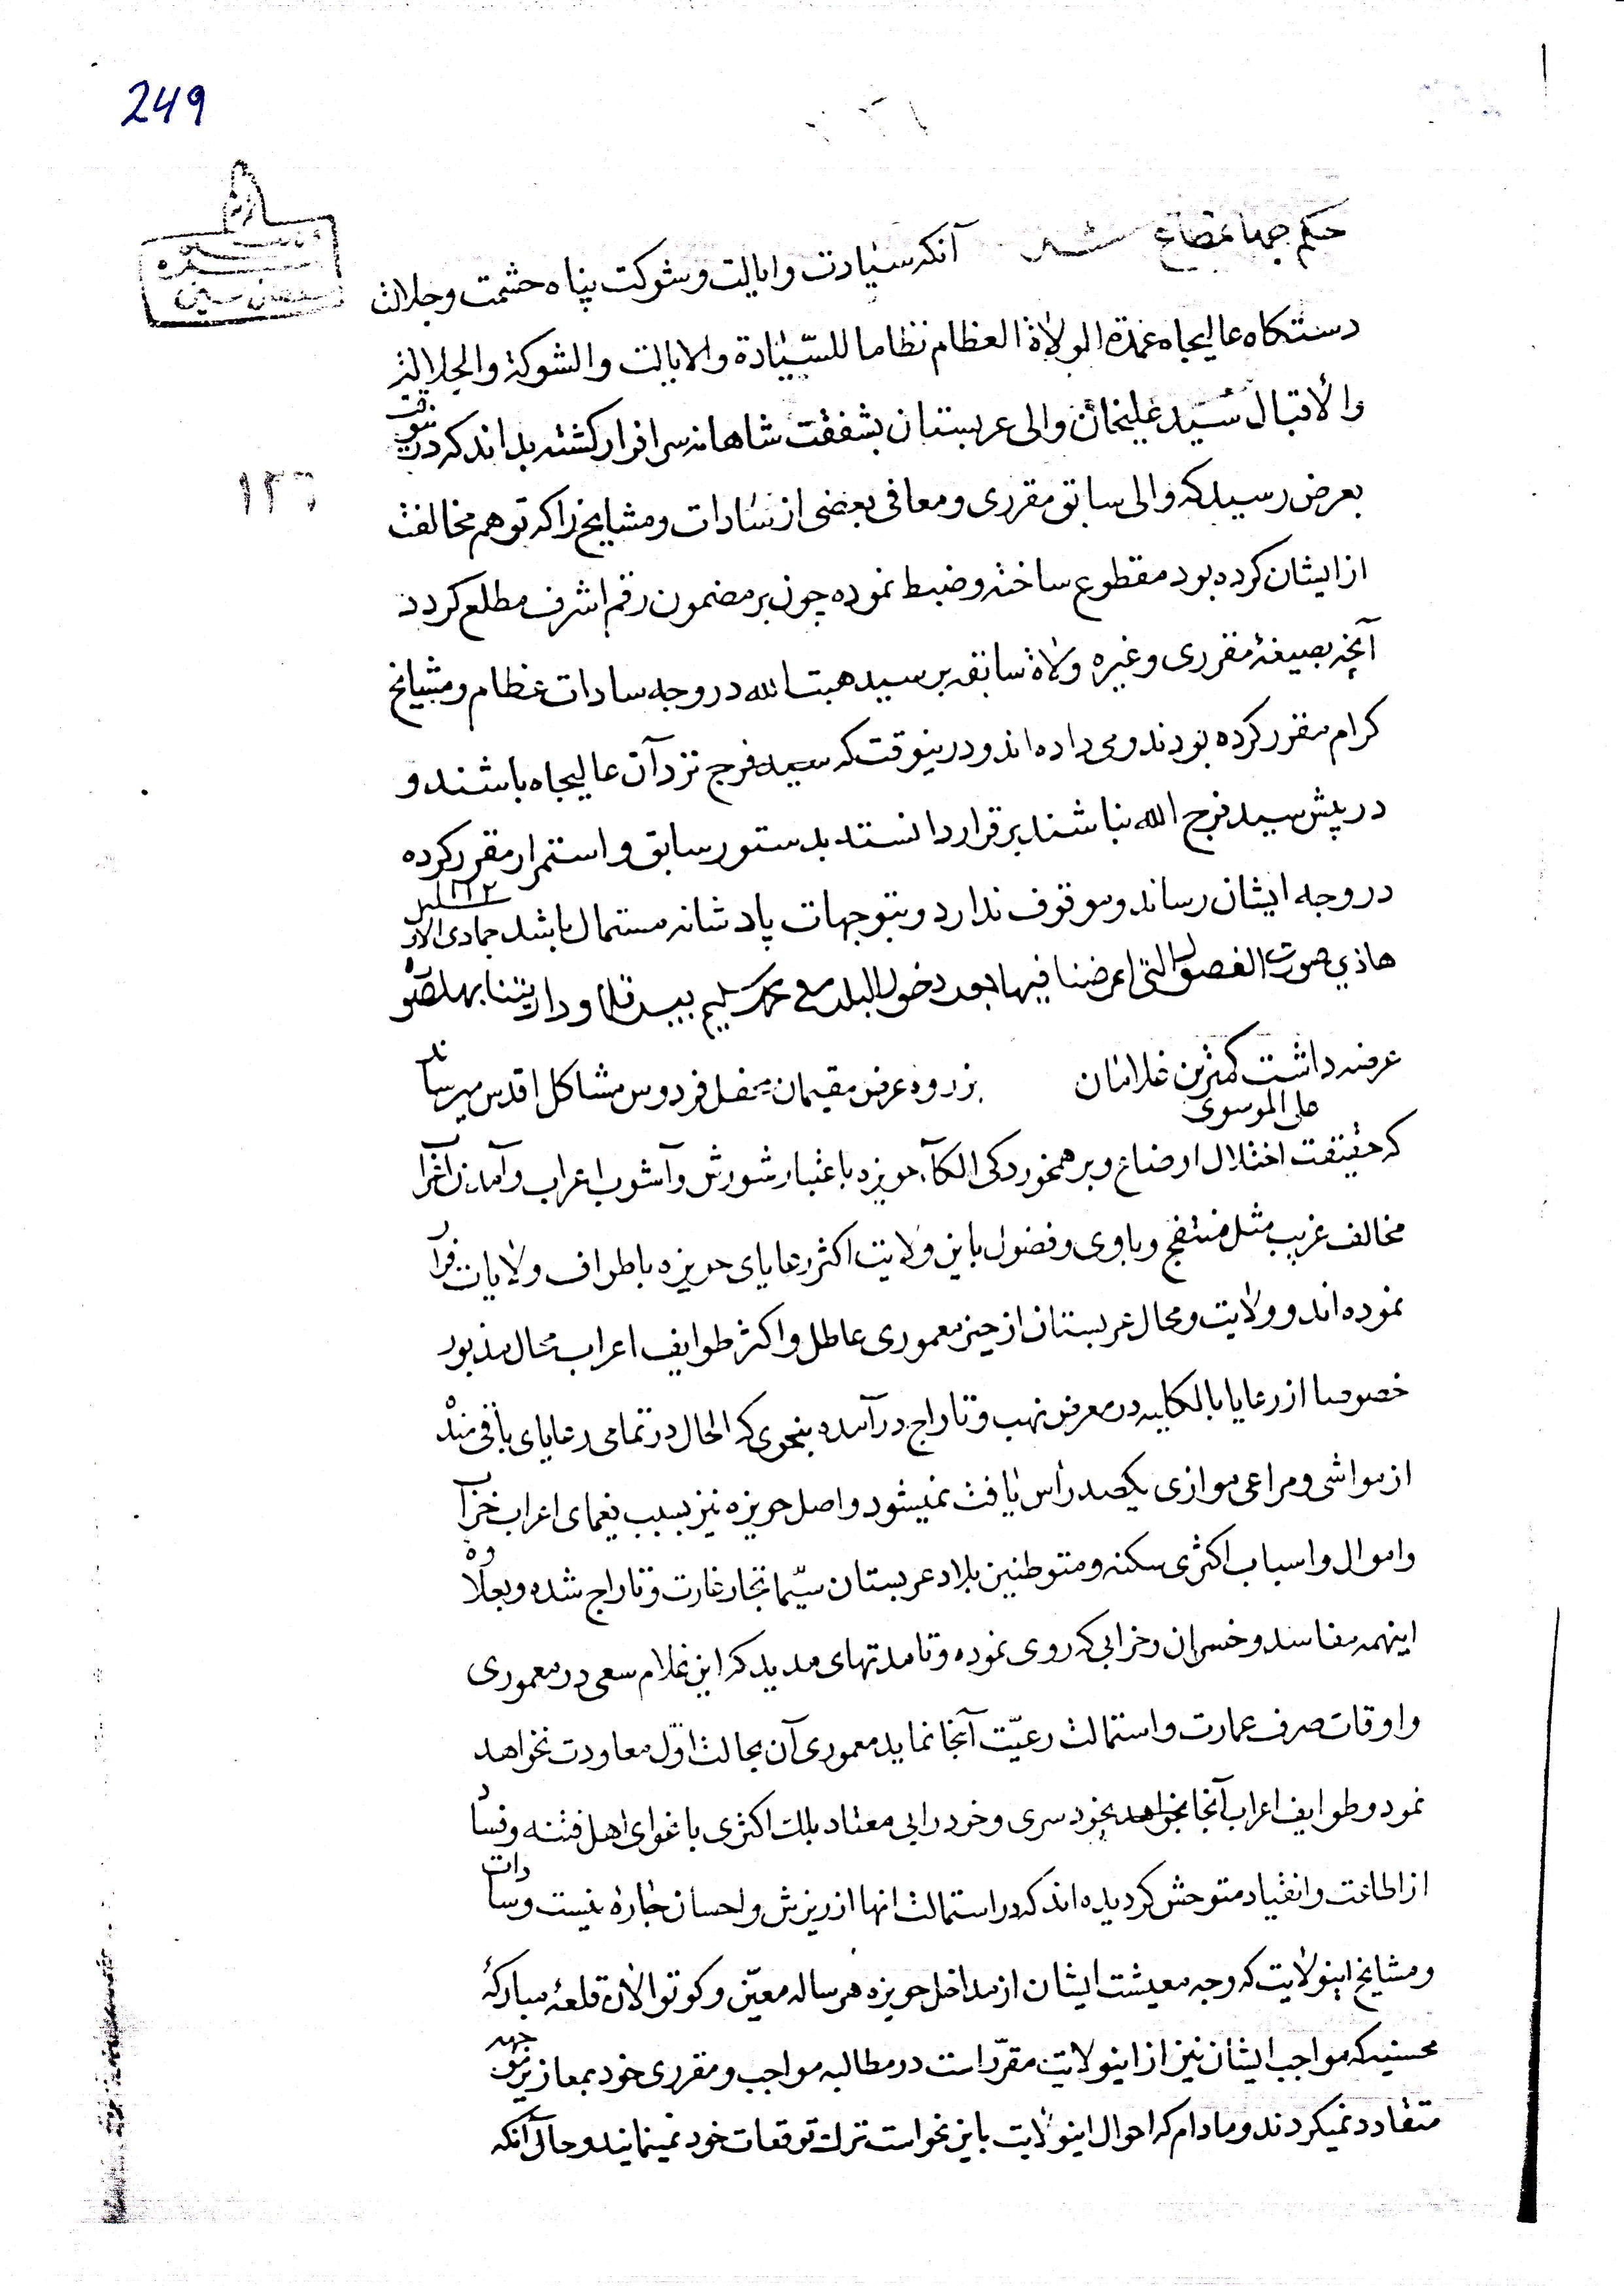 249
حکم جهانمطاع شد آنکه سیادت وایالت وشوکت پناه حشمت وجلالت
دستکاه عالیجاه عمدة الولاة العظام نظاما للسّیادة والایالت والشوکة والجلالة
والاقبال سید علیخان والی عربستان بشفقت شاهانه سرافراز کشته بداند که درینوقت
بعرض رسید که والی سابق مقرری ومعافی بعضی از سادات ومشایخ را که توهم مخالفت
۱۲٦
از ایشان کرده بود مقطوع ساخته وضبط نموده چون بر مضمون رقم اشرف مطلع کردد
آنچه بصیغهٔ مقرری وغیره ولاة سابقه بر سید هبت الله در وجه سادات عظام ومشایخ
کرام مقرر کرده بودند ومی داده اند ودرینوقت که سید فرج نزد آن عالیجاه باشند و
در پیش سید فرج الله نباشند برقرار دانسته بدستور سابق واستمرار مقرر کرده
در وجه ایشان رساند وموقوف ندارد وبتوجهات پادشانه مستمال باشد جمادی الاو ۱۱۱۲
هاذی صورت الفصول التی اعرضنا فیها بعد دخول البلد مع محمد سلیم بیک
عرضه داشت کمترین غلامان علی الموسوی بزروه عرض مقیمان محفل فردوس مشاکل اقدس میرساند
که حقیقت اختلال اوضاع وبرهمخوردکی الکآء حویزه باعتبار شورش وآشوب اعراب وآمدن اعراب
مخالف غریب مثل منتفج وباوی وفضول باین ولایت اکثر رعایای حویزه باطراف ولایات فرار
نموده اند وولایت ومحال عربستان از حیز معموری عاطل واکثر طوایف اعراب محال مذبور
خصوصا از رعایا بالکلیه در معرض نهب وتاراج درآمده بنحوی که الحال در تمامی رعایای باقی مانده
از مواشی ومراعی موازی یکصد رأس یافت نمیشود واصل حویزه نیز بسبب یغمای اعراب خراب
واموال واسباب اکثری سکنه ومتوطنین بلاد عربستان سیّما تجار غارت وتاراج شده وبعلاوه
اینهمه مفاسد وخسران وخرابی که روی نموده وتا مدتهای مدید که این غلام سعی در معموری
واوقات صرف عمارت واستمالت رعیّت آنجا نماید معموری آن بحالت اوّل معاودت نخواهد
نمود وطوایف اعراب آنجا بخودسری وخودرایی معتاد بلکه اکثری باغوای اهل فتنه وفساد
از اطاعت وانقیاد متوحش کردیده اند که در استمالت انها از ریزش واحسان چاره نیست وسادات
ومشایخ اینولایت که وجه معیشت ایشان از مداخل حویزه هر ساله معیّن وکوتوالان قلعهٔ مبارکهٔ
محسنیه که مواجب ایشان نیز از اینولایت مقرّراست در مطالبه مواجب ومقرری خود بمعاذیر موجهه
متقاعد نمیکردند ومادام که احوال اینولایت باین نحواست ترک توقعات خود نمینمایند وحال آنکه